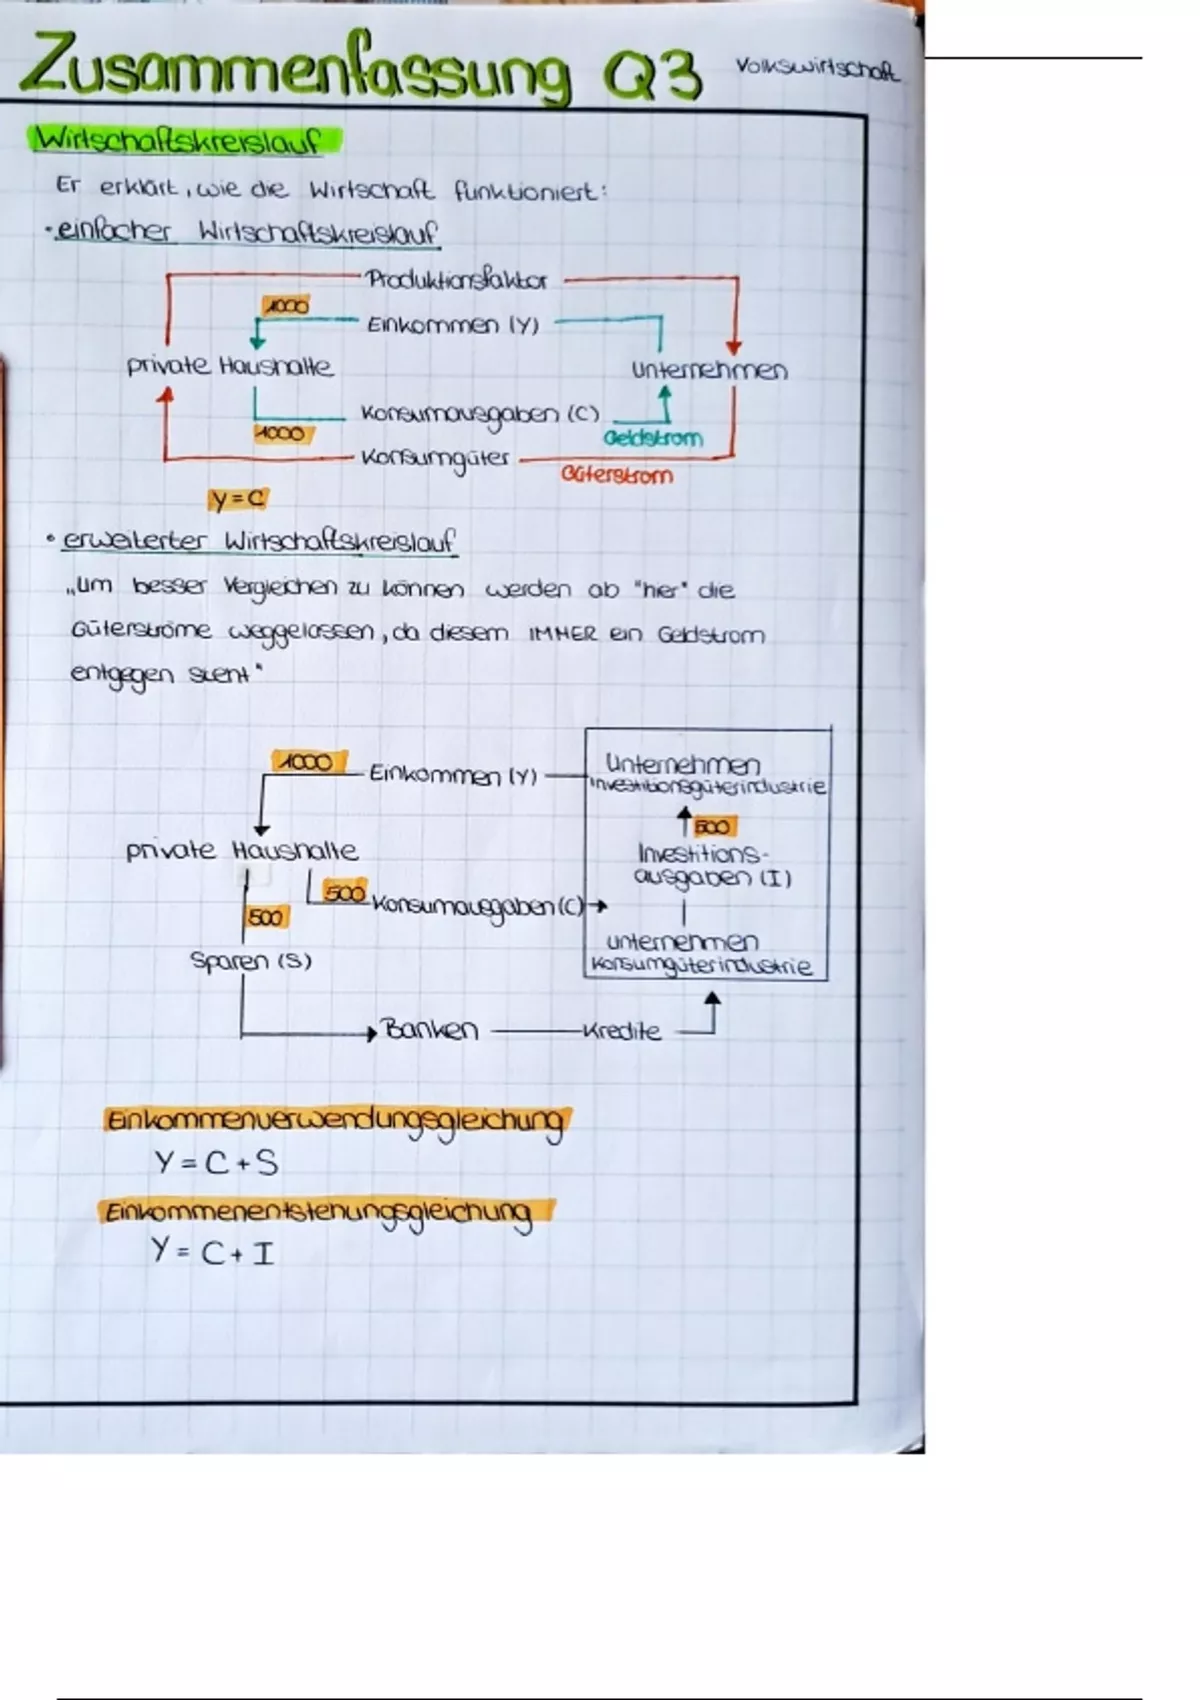 Zusammenfassung Q3 Volkswirtschaft
Wirtschaftskreislauf
Er erklärt, wie die Wirtschaft funktioniert:
· einfacher Wirtschaftskreislauf
Produktionsfaktor
1000
Einkommen (Y)
private Haushalte
Unternehmen
Konsumausgaben (C)
1000
Geldstrom
Konsumgüter
Güterstrom
Y = C
• erweiterter Wirtschaftskreislauf
„Um besser Vergleichen zu können werden ab "hier" die
Güterströme weggelassen, da diesem IMMER ein Geldstrom
entgegen steht"
1000
Einkommen (Y)
Unternehmen
Investitionsgüterindustrie
500
private Haushalte
Investitions-
ausgaben (I)
500
Konsumausgaben (C)
500
Unternehmen
Konsumgüterindustrie
Sparen (S)
Banken
Kredite
Einkommenverwendungsgleichung
Y = C + S
Einkommenentstehungsgleichung
Y = C + I